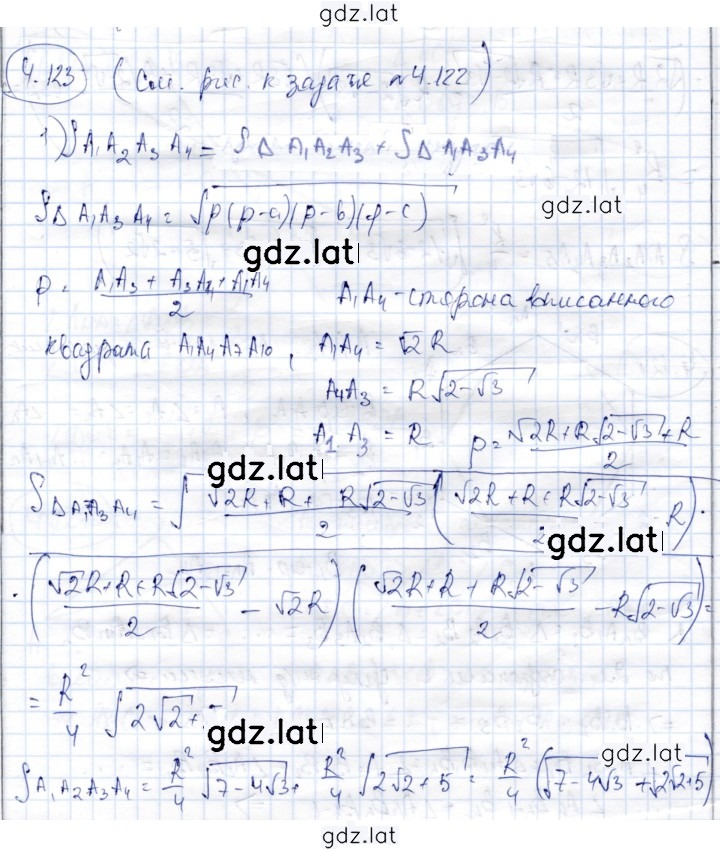 gdz.lat
4.123 (См. рис. к задаче №4.122)
1) S A₁A₂A₃A₄ = S Δ A₁A₂A₃ + S Δ A₁A₃A₄
S Δ A₁A₃A₄ = √(p(p-a)(p-b)(p-c))
gdz.lat
p = (A₁A₃ + A₃A₄ + A₁A₄)/2 A₁A₄ - сторона вписанного
квадрата A₁A₄A₇A₁₀, A₁A₄ = √2 R
A₄A₃ = R√(2-√3)
A₁A₃ = R p = (√2R + R√(2-√3) + R)/2
gdz.lat
S Δ A₁A₃A₄ = √((√2R + R + R√(2-√3))/2 ((√2R + R + R√(2-√3))/2 - R) ·
gdz.lat
· ((√2R + R + R√(2-√3))/2 - √2R) ((√2R + R + R√(2-√3))/2 - R√(2-√3)) =
= R²/4 √(2√2 +
gdz.lat
gdz.lat
S A₁A₂A₃A₄ = R²/4 √(7-4√3) + R²/4 √(2√2+5) = R²/4 (√(7-4√3) + √(2√2+5))
gdz.lat